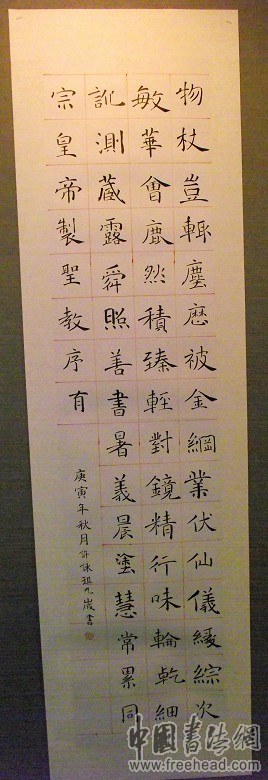 物杖豈輒塵歷被金綱業伏仙儀緩綜次
敏華會鹿然積臻輕對鏡精行味輪乾細
訛測蔵露舜照善書暑義晨塗慧常累同
宗皇帝製聖教序有
庚寅年秋月許詠祖九歲書
中國書法網
www.freehead.com